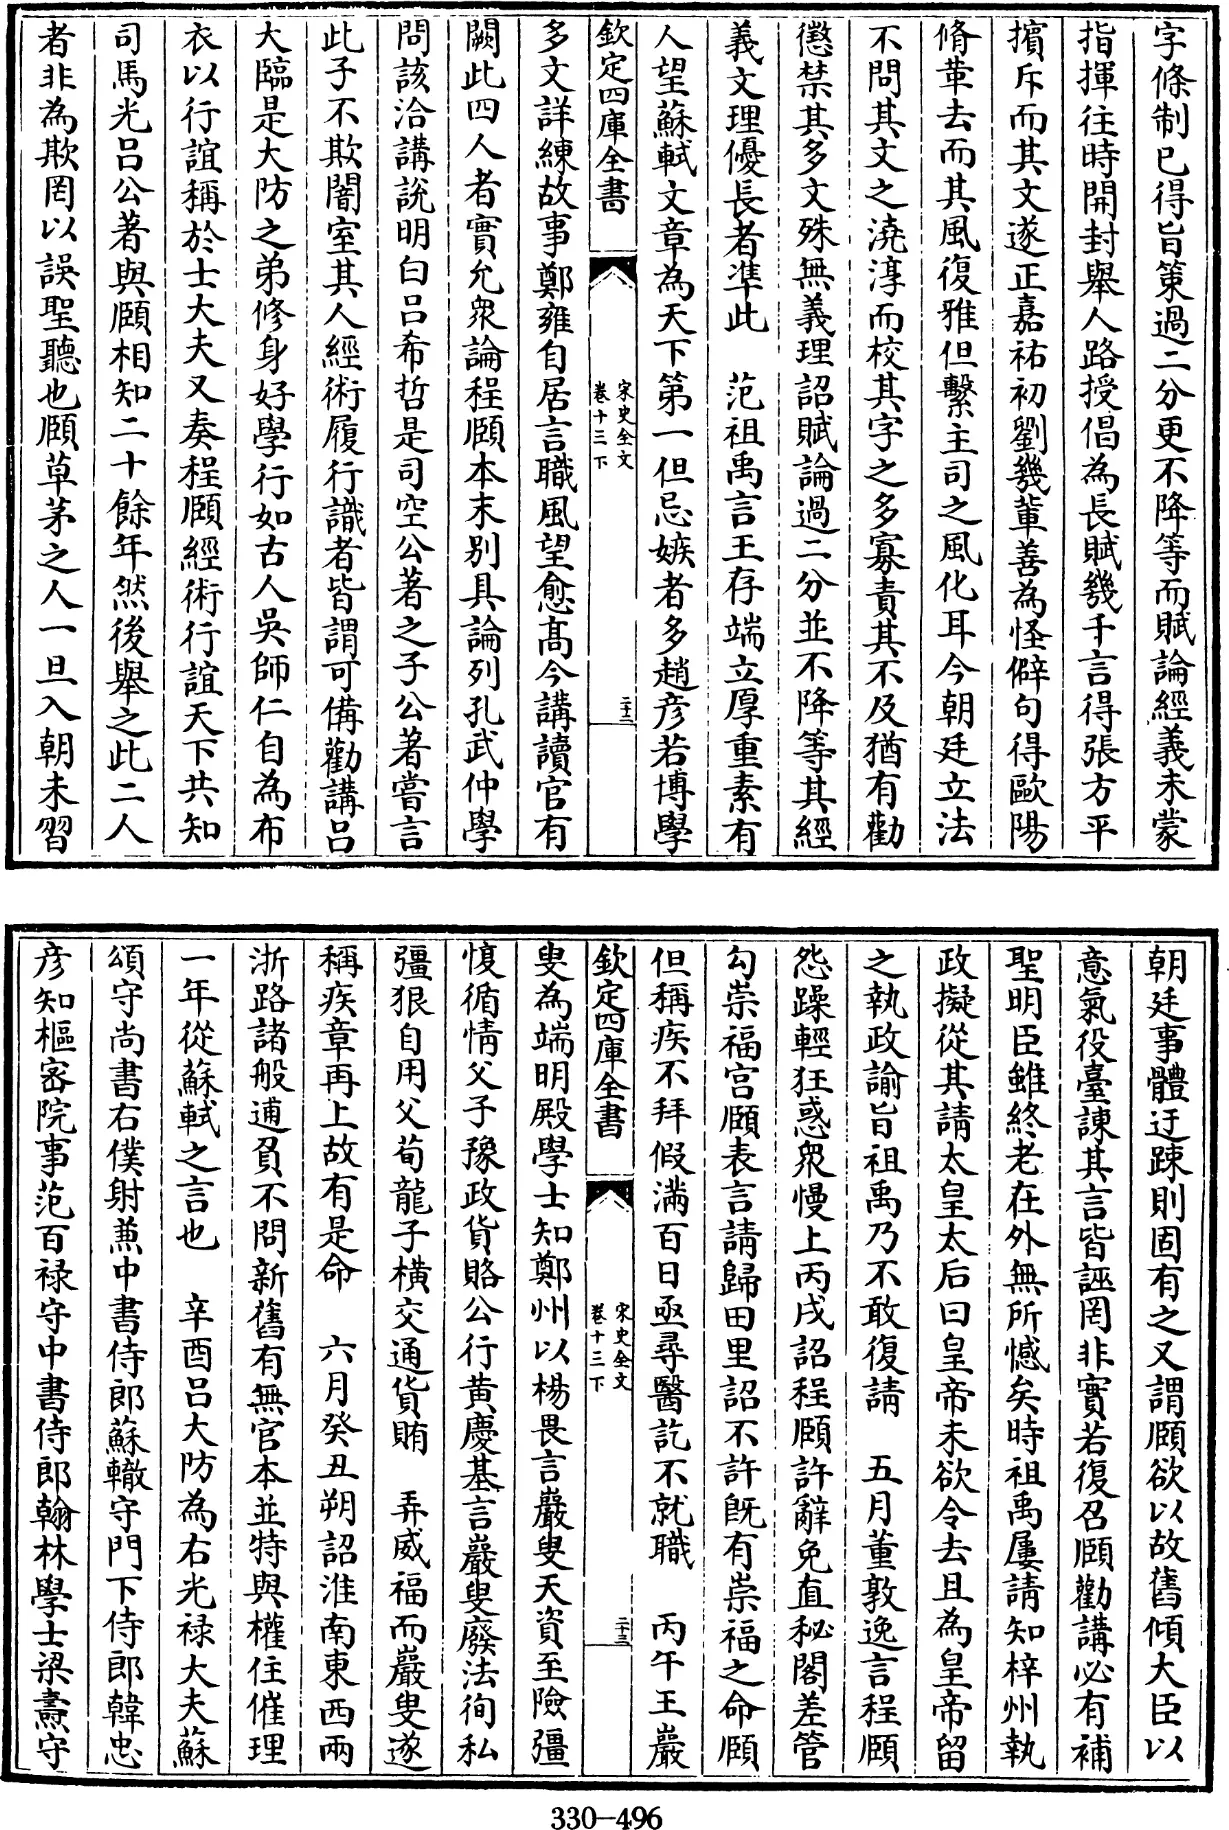 字條制已得旨策過二分更不降等而賦論經義未蒙
指揮往時開封舉人路授倡為長賦幾千言得張方平
擯斥而其文遂正嘉祐初劉幾軰善為怪僻句得歐陽
脩革去而其風復雅但繫主司之風化耳今朝廷立法
不問其文之澆淳而校其字之多寡責其不及猶有勸
懲禁其多文殊無義理詔賦論過二分並不降等其經
義文理優長者準此　范祖禹言王存端立厚重素有
人望蘇軾文章為天下第一但忌嫉者多趙彦若博學
欽定四庫全書
宋史全文
卷十三下
二十二
多文詳練故事鄭雍自居言職風望愈髙今講讀官有
闕此四人者實允衆論程頥本末别具論列孔武仲學
問該洽講說明白吕希哲是司空公著之子公著嘗言
此子不欺闇室其人經術履行識者皆謂可備勸講吕
大臨是大防之弟修身好學行如古人吳師仁自為布
衣以行誼稱於士大夫又奏程頥經術行誼天下共知
司馬光吕公著與頥相知二十餘年然後舉之此二人
者非為欺罔以誤聖聽也頥草茅之人一旦入朝未習
朝廷事體迂踈則固有之又謂頥欲以故舊傾大臣以
意氣役臺諫其言皆誣罔非實若復召頥勸講必有補
聖明臣雖終老在外無所憾矣時祖禹屢請知梓州執
政擬從其請太皇太后曰皇帝未欲令去且為皇帝留
之執政諭旨祖禹乃不敢復請　五月董敦逸言程頥
怨躁輕狂惑衆慢上丙戌詔程頥許辭免直秘閣差管
勾崇福宫頥表言請歸田里詔不許旣有崇福之命頥
但稱疾不拜假滿百日亟尋醫訖不就職　丙午王巖
欽定四庫全書
宋史全文
卷十三下
二十三
叟為端明殿學士知鄭州以楊畏言巖叟天資至險彊
愎循情父子豫政貨賂公行黄慶基言巖叟廢法徇私
彊狠自用父荀龍子橫交通貨賄　弄威福而巖叟遂
稱疾章再上故有是命　六月癸丑朔詔淮南東西兩
浙路諸般逋負不問新舊有無官本並特與權住催理
一年從蘇軾之言也　辛酉吕大防為右光禄大夫蘇
頌守尚書右僕射兼中書侍郎蘇轍守門下侍郎韓忠
彦知樞密院事范百禄守中書侍郎翰林學士梁燾守
330-496